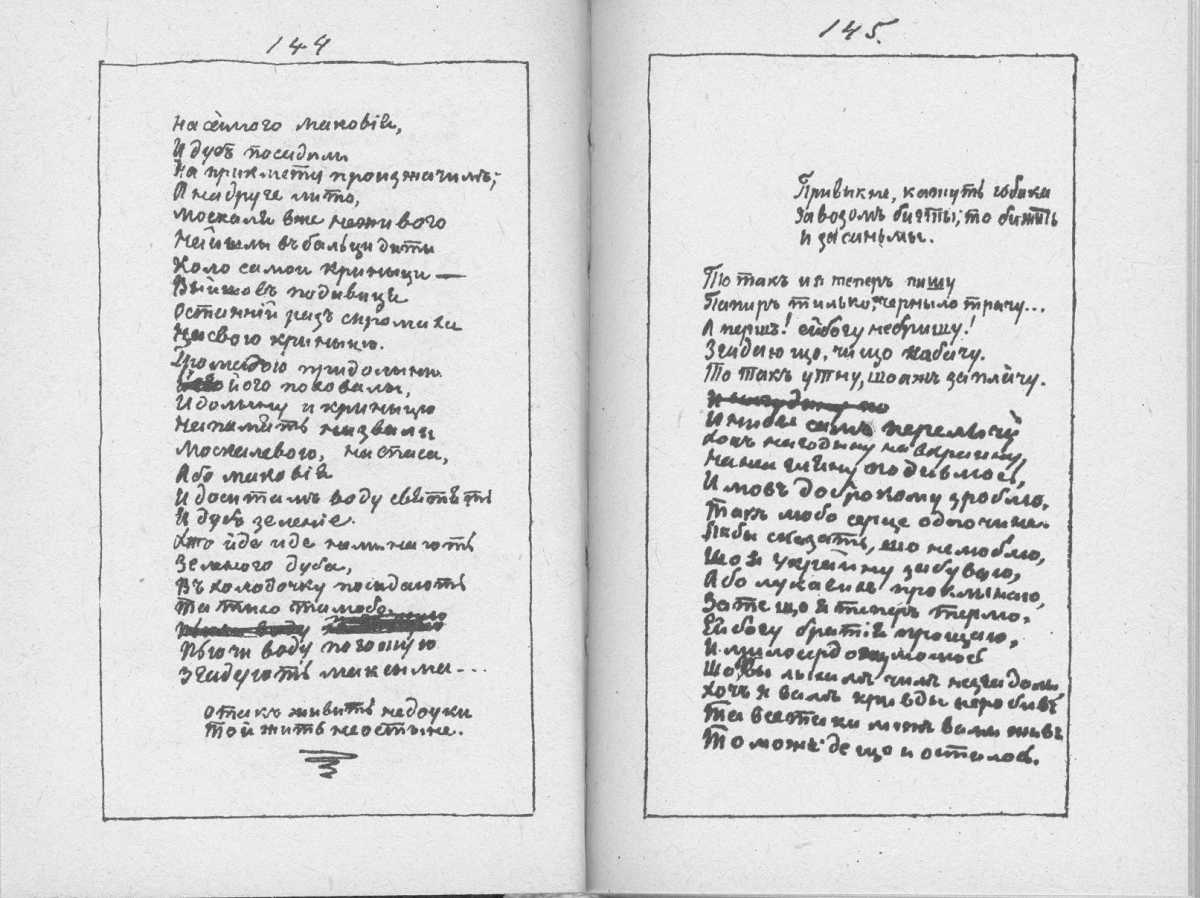 144
На самого маковія,
И дубъ посадили
На прикмету произжачимъ;
А на друге лито,
Москали вже неживого
Найшлы въ бальци диты
Коло самои крыныци —
Выйшовъ подывыця
Останній разъ сирома
На свою крыныцю.
Громадою при долыни
його поховалы,
И долыну и крыныцю
На память назвали
Москалевою, на спаса,
Або маковія
И доси тамъ воду святять
И дубъ зеленіє.
Хто йде иде неминають
Зеленого дуба,
Въ холодочку посидають
Та тыхо та любо
Пьючи воду погожую
Згадують максыма...
Отакъ живить недоуки
То й жить не остыне.
145.
Привыкне, кажуть собака
За возомъ бигты; то бижить
И за саньмы.
То такъ и я теперъ пишу
Папиръ тилько, черныло трачу...
А першъ! ейбогу не бришу!
Згадаю що, чи що набачу.
То такъ утну, що ажъ заплачу.
И ниби самъ перелечу
Хочъ на годыну на вкраину,
На неи гляну подывлюсь,
И мовъ доброкому зроблю,
Такъ любо серце одпочине.
Якбы сказать, що не люблю,
Що я Украйину забуваю,
Або лукавыхъ проклынаю,
За те що я теперъ терплю,
Ейбогу братія прощаю,
И милосердому молюсь
Що бъ вы лыхимъ чимъ не згадали,
Хочъ я вамъ кривды не робивъ
Та все таки межъ вами живъ
То може де що и осталось.